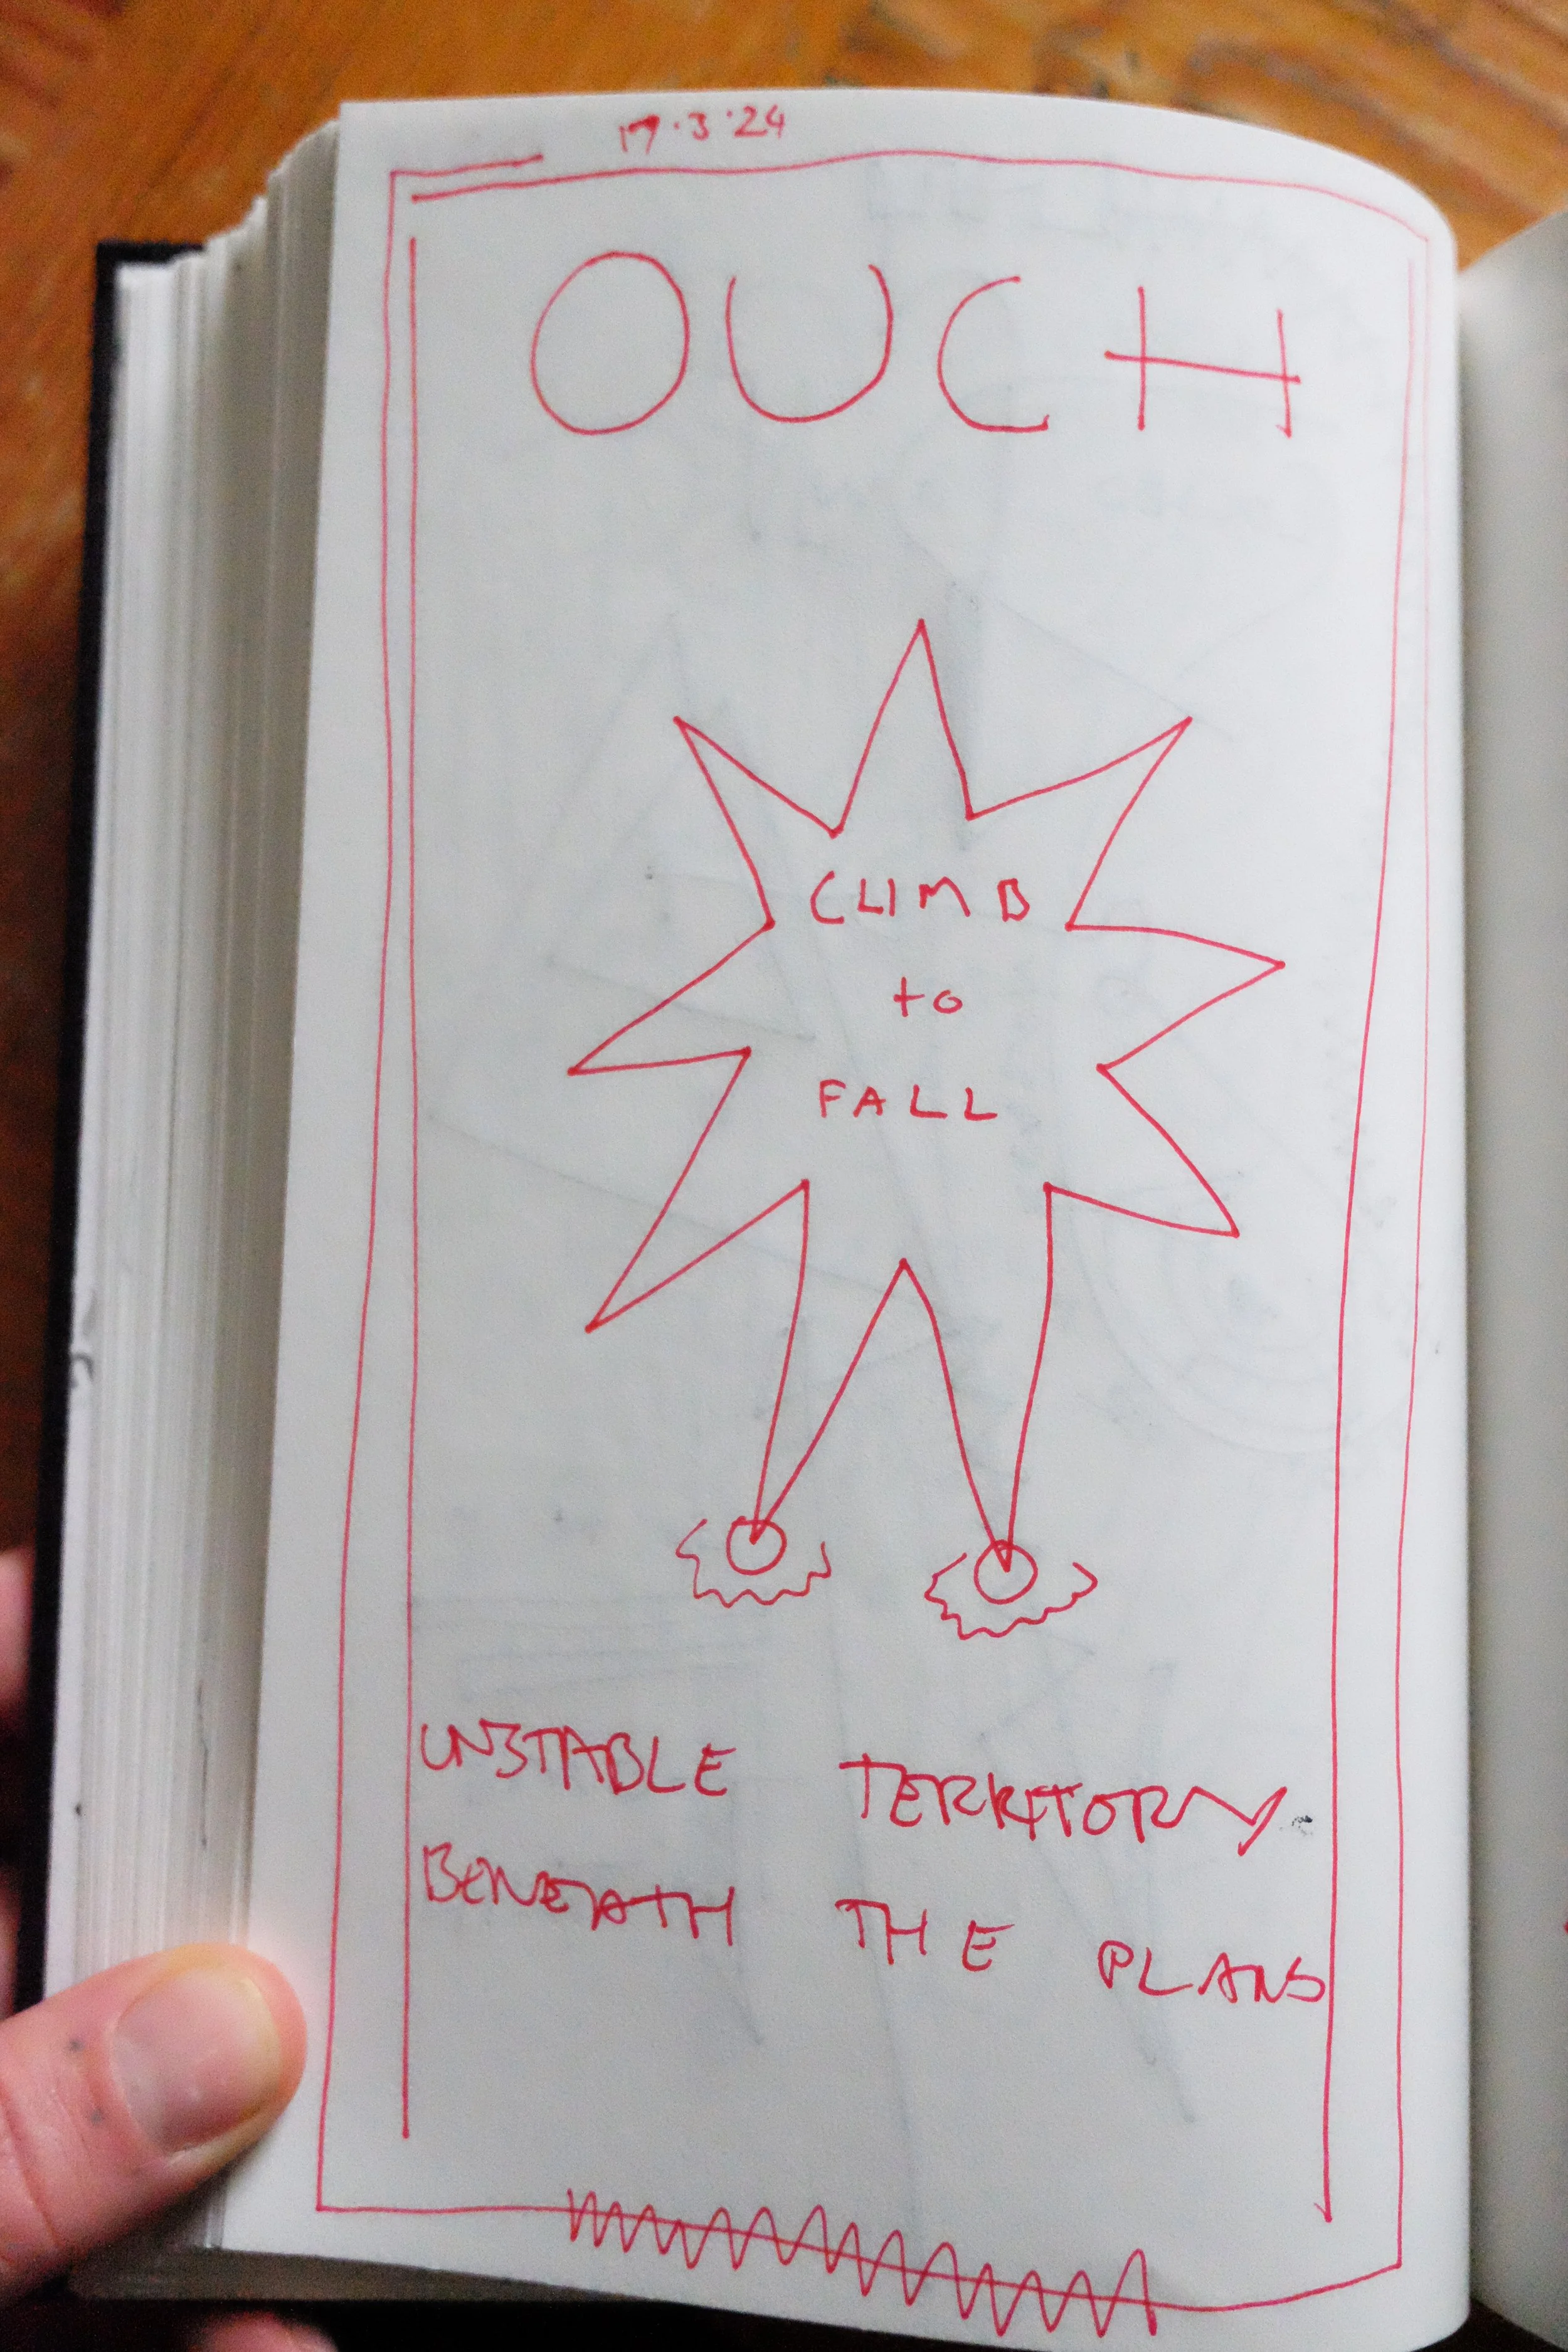 17.3.24
OUCH
CLIMB
to
FALL
UNSTABLE TERRITORY
BENEATH THE PLANS